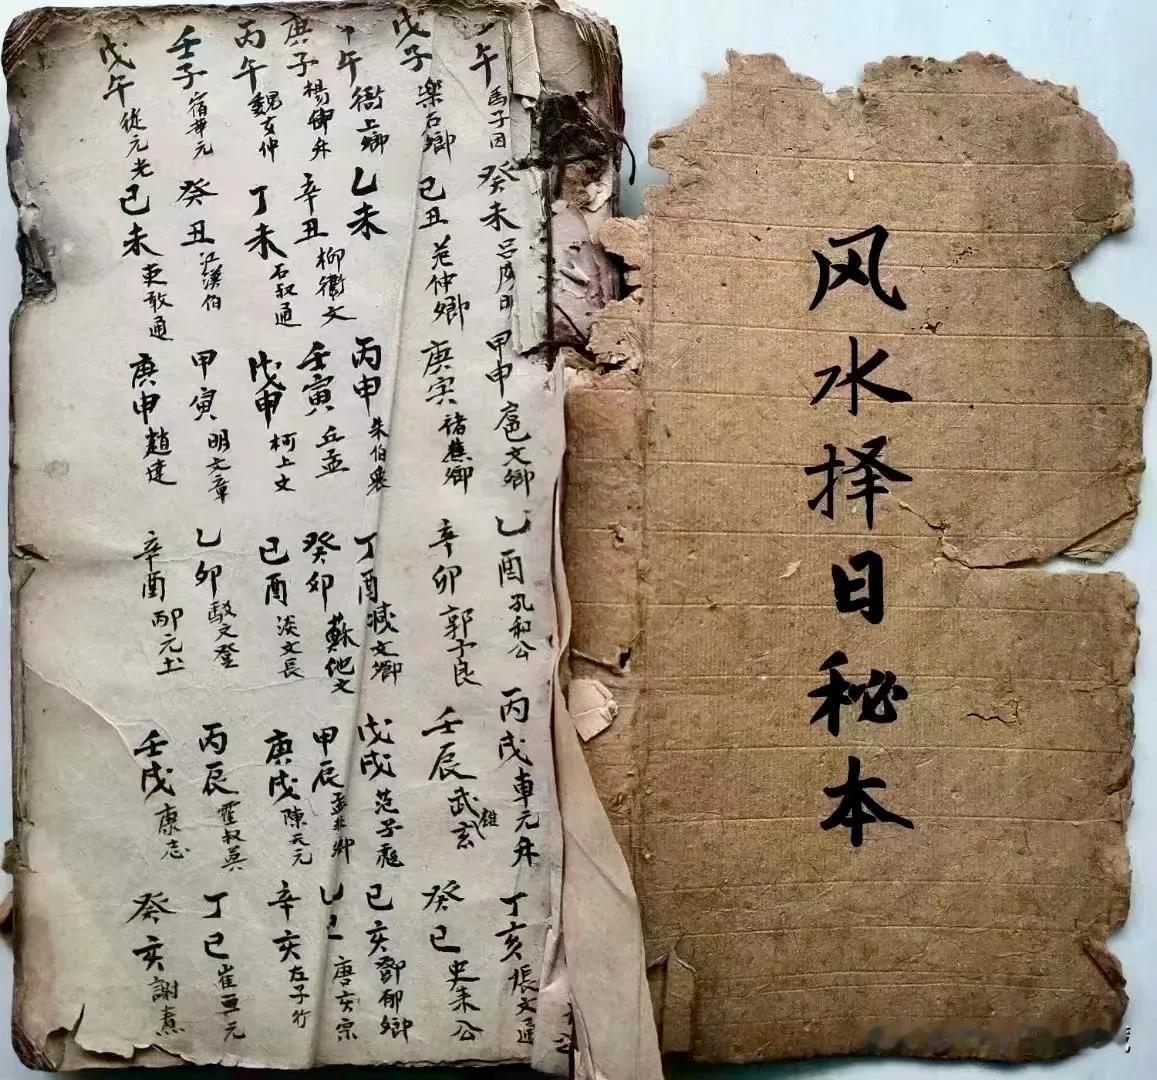 风水择日秘本
午 馬子因 癸未 甲申 扈文卿 乙酉 孔和公 丙戌 車元升 丁亥 張文通
戊子 樂石卿 己丑 范仲卿 庚寅 褚蕉卿 辛卯 郭子良 壬辰 武玄雄 癸巳 史朱公
午 衛上卿 乙未 丙申 朱伯衆 丁酉 臧文卿 戊戌 范子彪 己亥 鄧郁卿
庚子 楊仲升 辛丑 柳衛文 壬寅 丘孟 癸卯 蘇他文 甲辰 孟非卿 乙巳 唐亥宗
丙午 魏文仲 丁未 石叔通 戊申 柯上文 己酉 淡文長 庚戌 陳元元 辛亥 左子行
壬子 宿華元 癸丑 江漢伯 甲寅 明文章 乙卯 文登 丙辰 霍叔英 丁巳 崔亜元
戊午 從元光 己未 敢通 庚申 趙達 辛酉 邴元士 壬戌 康志 癸亥 謝熹